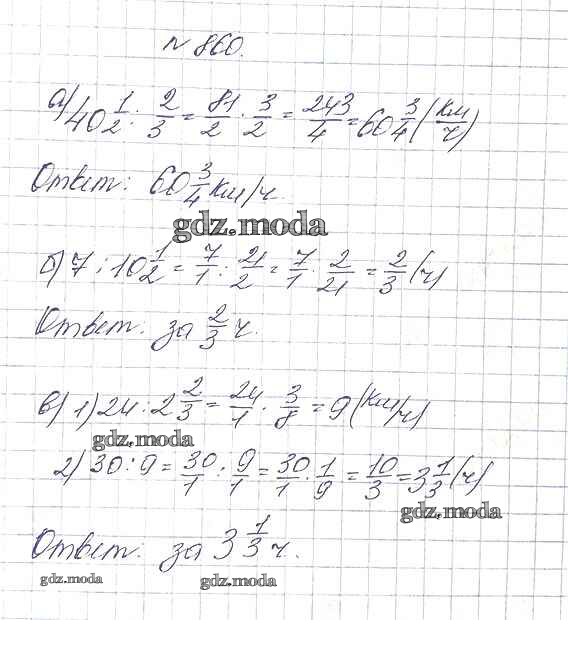 № 860.
а) 40 1/2 : 2/3 = 81/2 · 3/2 = 243/4 = 60 3/4 (км/ч)
Ответ: 60 3/4 км/ч.
gdz.moda
б) 7 : 10 1/2 = 7/1 : 21/2 = 7/1 · 2/21 = 2/3 (ч)
Ответ: за 2/3 ч.
в) 1) 24 : 2 2/3 = 24/1 · 3/8 = 9 (км/ч)
gdz.moda
2) 30 : 9 = 30/1 : 9/1 = 30/1 · 1/9 = 10/3 = 3 1/3 (ч)
gdz.moda
Ответ: за 3 1/3 ч.
gdz.moda
gdz.moda